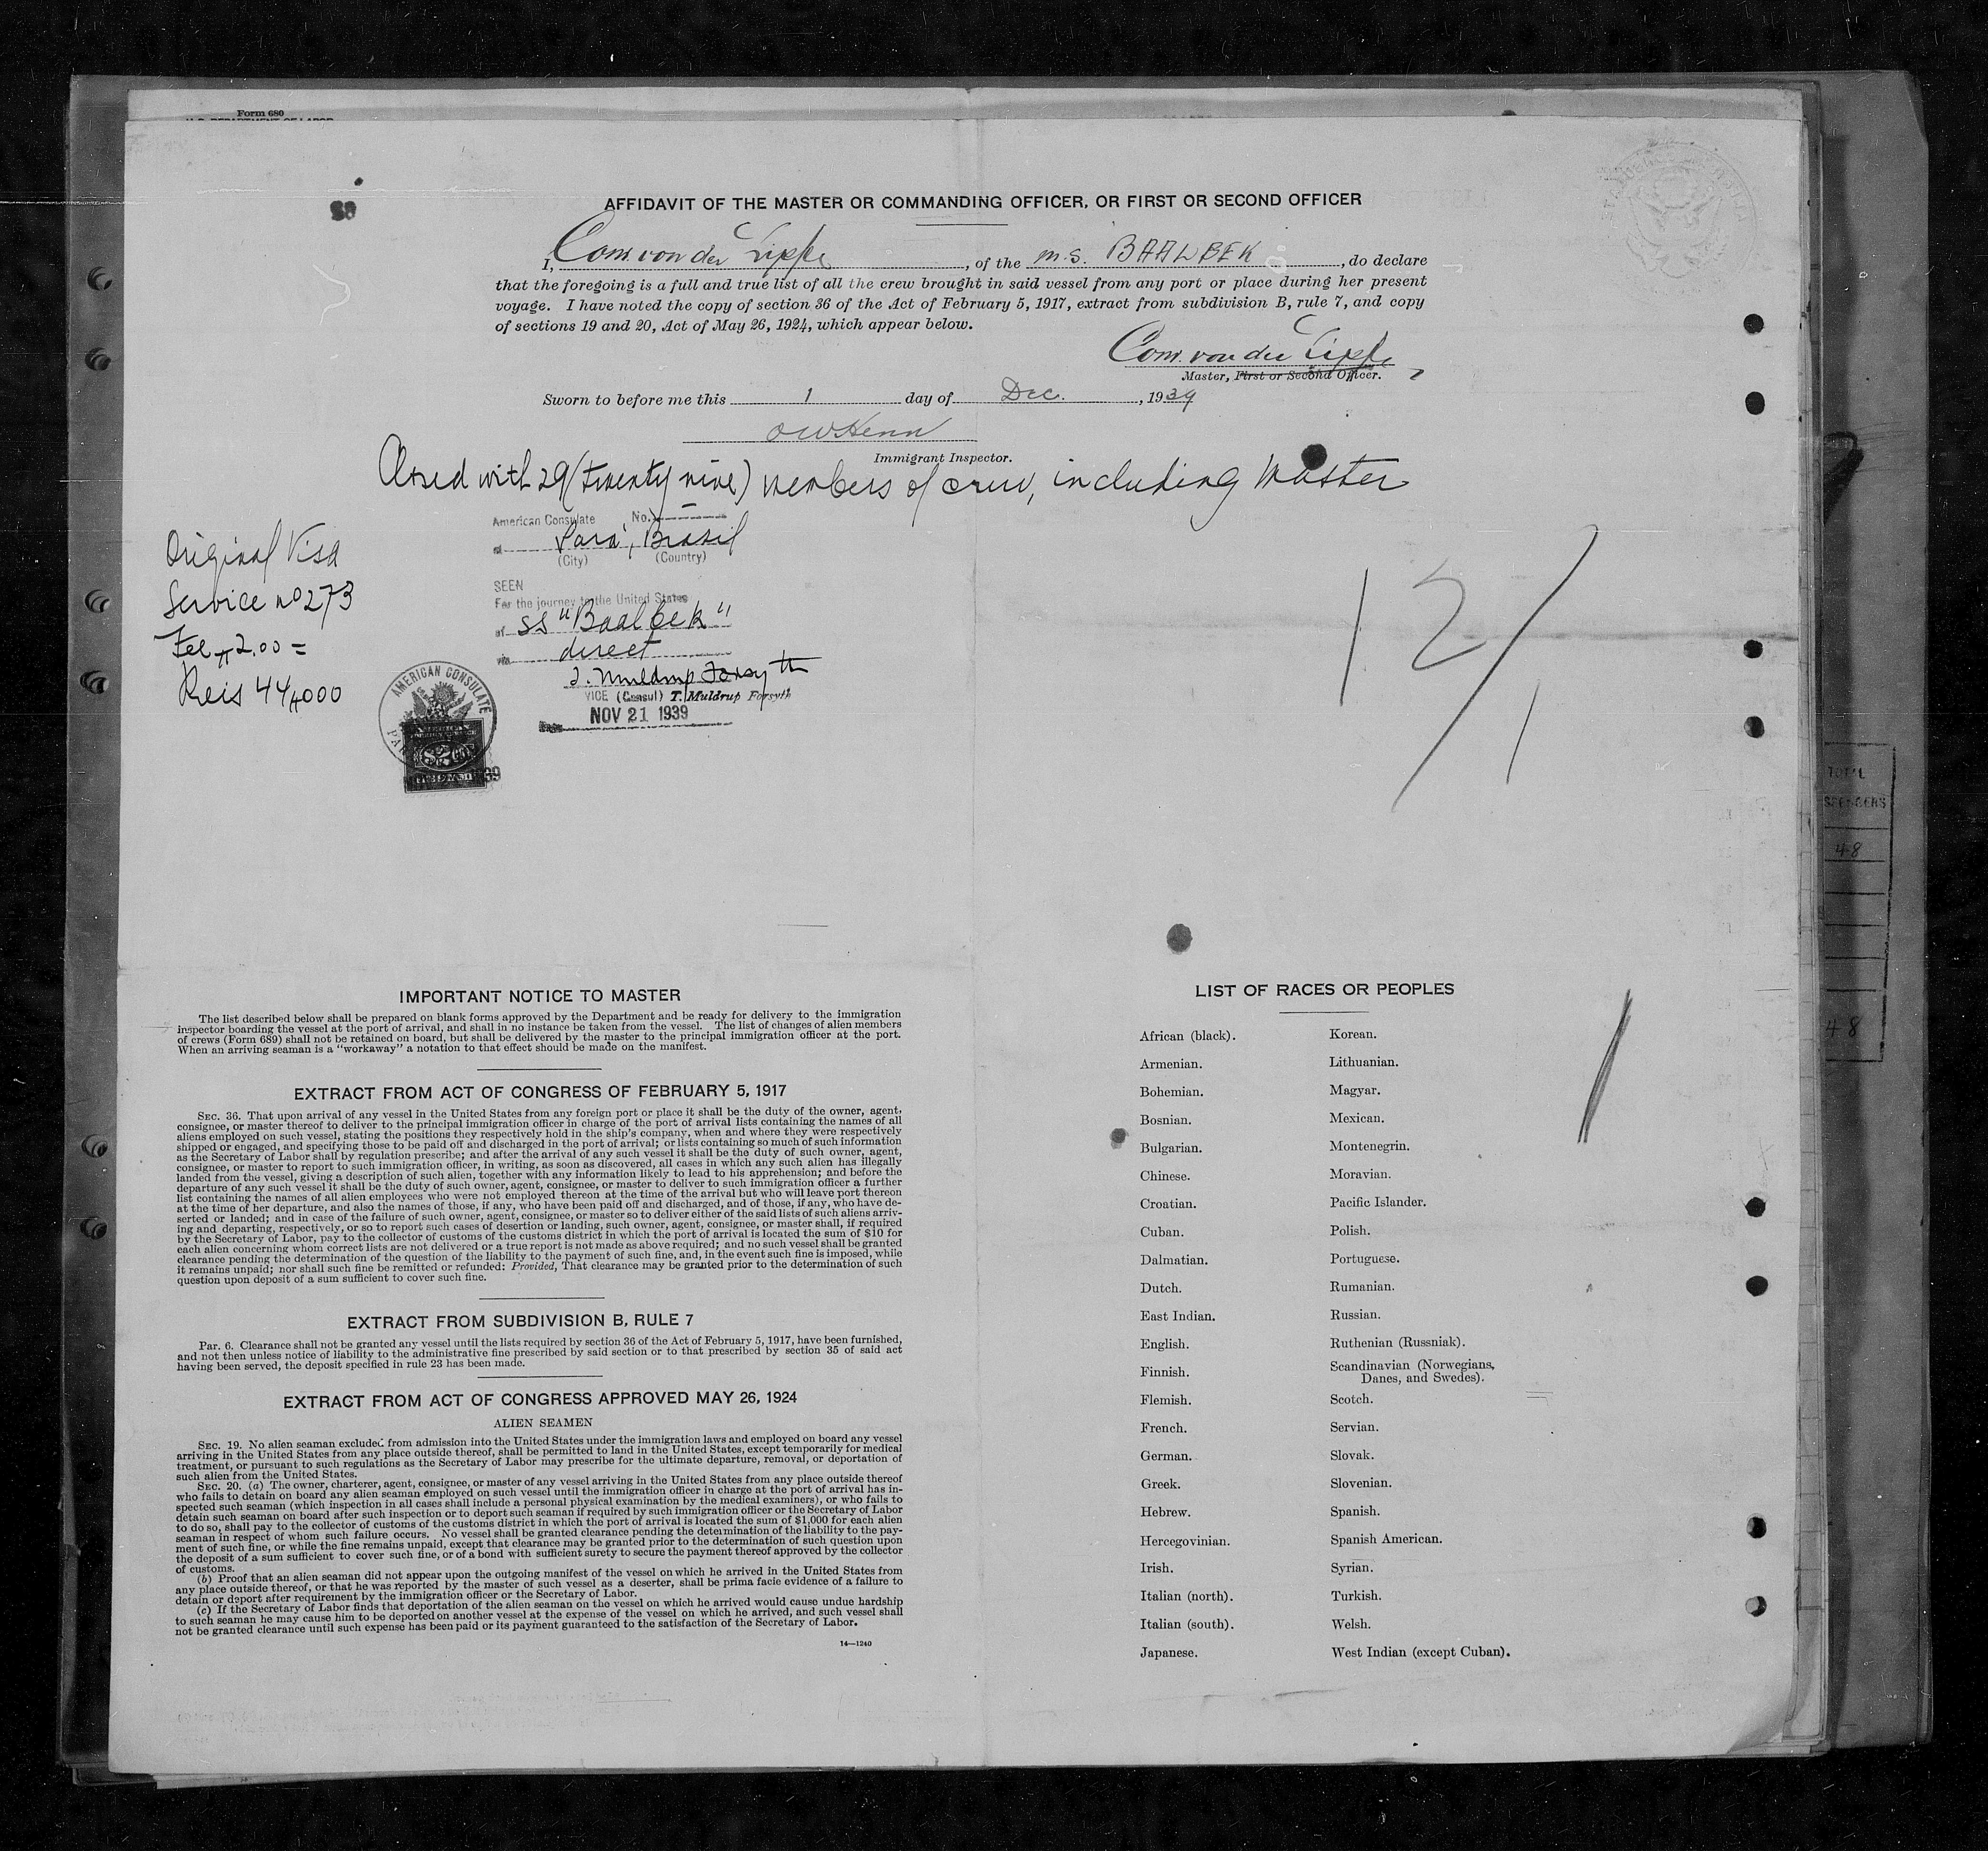 Form 680
AFFIDAVIT OF THE MASTER OR COMMANDING OFFICER, OR FIRST OR SECOND OFFICER
I, Com. von der Lippe, of the m.s. BAALBEK, do declare
that the foregoing is a full and true list of all the crew brought in said vessel from any port or place during her present
voyage. I have noted the copy of section 36 of the Act of February 5, 1917, extract from subdivision B, rule 7, and copy
of sections 19 and 20, Act of May 26, 1924, which appear below.
Com. von der Lippe
Master, First or Second Officer.
Sworn to before me this 1 day of Dec., 1939
Immigrant Inspector.
Closed with 29 (twenty nine) members of crew, including Master
American Consulate No.
at Pará, Brasil
(City) (Country)
SEEN
For the journey to the United States
of SS "Baalbek"
via direct
T. Muldrup Forsyth
VICE (Consul) T. Muldrup Forsyth
NOV 21 1939
Original Visa
Service no 273
Fee $2.00 =
Reis 44$000
AMERICAN CONSULATE
12/1
TOTAL
48
48
IMPORTANT NOTICE TO MASTER
The list described below shall be prepared on blank forms approved by the Department and be ready for delivery to the immigration
inspector boarding the vessel at the port of arrival, and shall in no instance be taken from the vessel. The list of changes of alien members
of crews (Form 689) shall not be retained on board, but shall be delivered by the master to the principal immigration officer at the port.
When an arriving seaman is a "workaway" a notation to that effect should be made on the manifest.
EXTRACT FROM ACT OF CONGRESS OF FEBRUARY 5, 1917
SEC. 36. That upon arrival of any vessel in the United States from any foreign port or place it shall be the duty of the owner, agent,
consignee, or master thereof to deliver to the principal immigration officer in charge of the port of arrival lists containing the names of all
aliens employed on such vessel, stating the positions they respectively hold in the ship's company, when and where they were respectively
shipped or engaged, and specifying those to be paid off and discharged in the port of arrival; or lists containing so much of such information
as the Secretary of Labor shall by regulation prescribe; and after the arrival of any such vessel it shall be the duty of such owner, agent,
consignee, or master to report to such immigration officer, in writing, as soon as discovered, all cases in which any such alien has illegally
landed from the vessel, giving a description of such alien, together with any information likely to lead to his apprehension; and before the
departure of any such vessel it shall be the duty of such owner, agent, consignee, or master to deliver to such immigration officer a further
list containing the names of all alien employees who were not employed thereon at the time of the arrival but who will leave port thereon
at the time of her departure, and also the names of those, if any, who have been paid off and discharged, and of those, if any, who have de-
serted or landed; and in case of the failure of such owner, agent, consignee, or master so to deliver either of the said lists of such aliens arriv-
ing and departing, respectively, or so to report such cases of desertion or landing, such owner, agent, consignee, or master shall, if required
by the Secretary of Labor, pay to the collector of customs of the customs district in which the port of arrival is located the sum of $10 for
each alien concerning whom correct lists are not delivered or a true report is not made as above required; and no such vessel shall be granted
clearance pending the determination of the question of the liability to the payment of such fine, and, in the event such fine is imposed, while
it remains unpaid; nor shall such fine be remitted or refunded: Provided, That clearance may be granted prior to the determination of such
question upon deposit of a sum sufficient to cover such fine.
EXTRACT FROM SUBDIVISION B, RULE 7
Par. 6. Clearance shall not be granted any vessel until the lists required by section 36 of the Act of February 5, 1917, have been furnished,
and not then unless notice of liability to the administrative fine prescribed by said section or to that prescribed by section 35 of said act
having been served, the deposit specified in rule 23 has been made.
EXTRACT FROM ACT OF CONGRESS APPROVED MAY 26, 1924
ALIEN SEAMEN
SEC. 19. No alien seaman excluded from admission into the United States under the immigration laws and employed on board any vessel
arriving in the United States from any place outside thereof, shall be permitted to land in the United States, except temporarily for medical
treatment, or pursuant to such regulations as the Secretary of Labor may prescribe for the ultimate departure, removal, or deportation of
such alien from the United States.
SEC. 20. (a) The owner, charterer, agent, consignee, or master of any vessel arriving in the United States from any place outside thereof
who fails to detain on board any alien seaman employed on such vessel until the immigration officer in charge at the port of arrival has in-
spected such seaman (which inspection in all cases shall include a personal physical examination by the medical examiners), or who fails to
detain such seaman on board after such inspection or to deport such seaman if required by such immigration officer or the Secretary of Labor
to do so, shall pay to the collector of customs of the customs district in which the port of arrival is located the sum of $1,000 for each alien
seaman in respect of whom such failure occurs. No vessel shall be granted clearance pending the determination of the liability to the pay-
ment of such fine, or while the fine remains unpaid, except that clearance may be granted prior to the determination of such question upon
the deposit of a sum sufficient to cover such fine, or of a bond with sufficient surety to secure the payment thereof approved by the collector
of customs.
(b) Proof that an alien seaman did not appear upon the outgoing manifest of the vessel on which he arrived in the United States from
any place outside thereof, or that he was reported by the master of such vessel as a deserter, shall be prima facie evidence of a failure to
detain or deport after requirement by the immigration officer or the Secretary of Labor.
(c) If the Secretary of Labor finds that deportation of the alien seaman on the vessel on which he arrived would cause undue hardship
to such seaman he may cause him to be deported on another vessel at the expense of the vessel on which he arrived, and such vessel shall
not be granted clearance until such expense has been paid or its payment guaranteed to the satisfaction of the Secretary of Labor.
14—1240
LIST OF RACES OR PEOPLES
African (black).
Armenian.
Bohemian.
Bosnian.
Bulgarian.
Chinese.
Croatian.
Cuban.
Dalmatian.
Dutch.
East Indian.
English.
Finnish.
Flemish.
French.
German.
Greek.
Hebrew.
Hercegovinian.
Irish.
Italian (north).
Italian (south).
Japanese.
Korean.
Lithuanian.
Magyar.
Mexican.
Montenegrin.
Moravian.
Pacific Islander.
Polish.
Portuguese.
Rumanian.
Russian.
Ruthenian (Russniak).
Scandinavian (Norwegians,
Danes, and Swedes).
Scotch.
Servian.
Slovak.
Slovenian.
Spanish.
Spanish American.
Syrian.
Turkish.
Welsh.
West Indian (except Cuban).